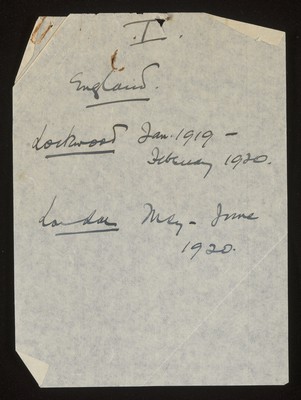 I.
England.
Lockwood Jan. 1919 -
February 1920.
London May - June
1920.